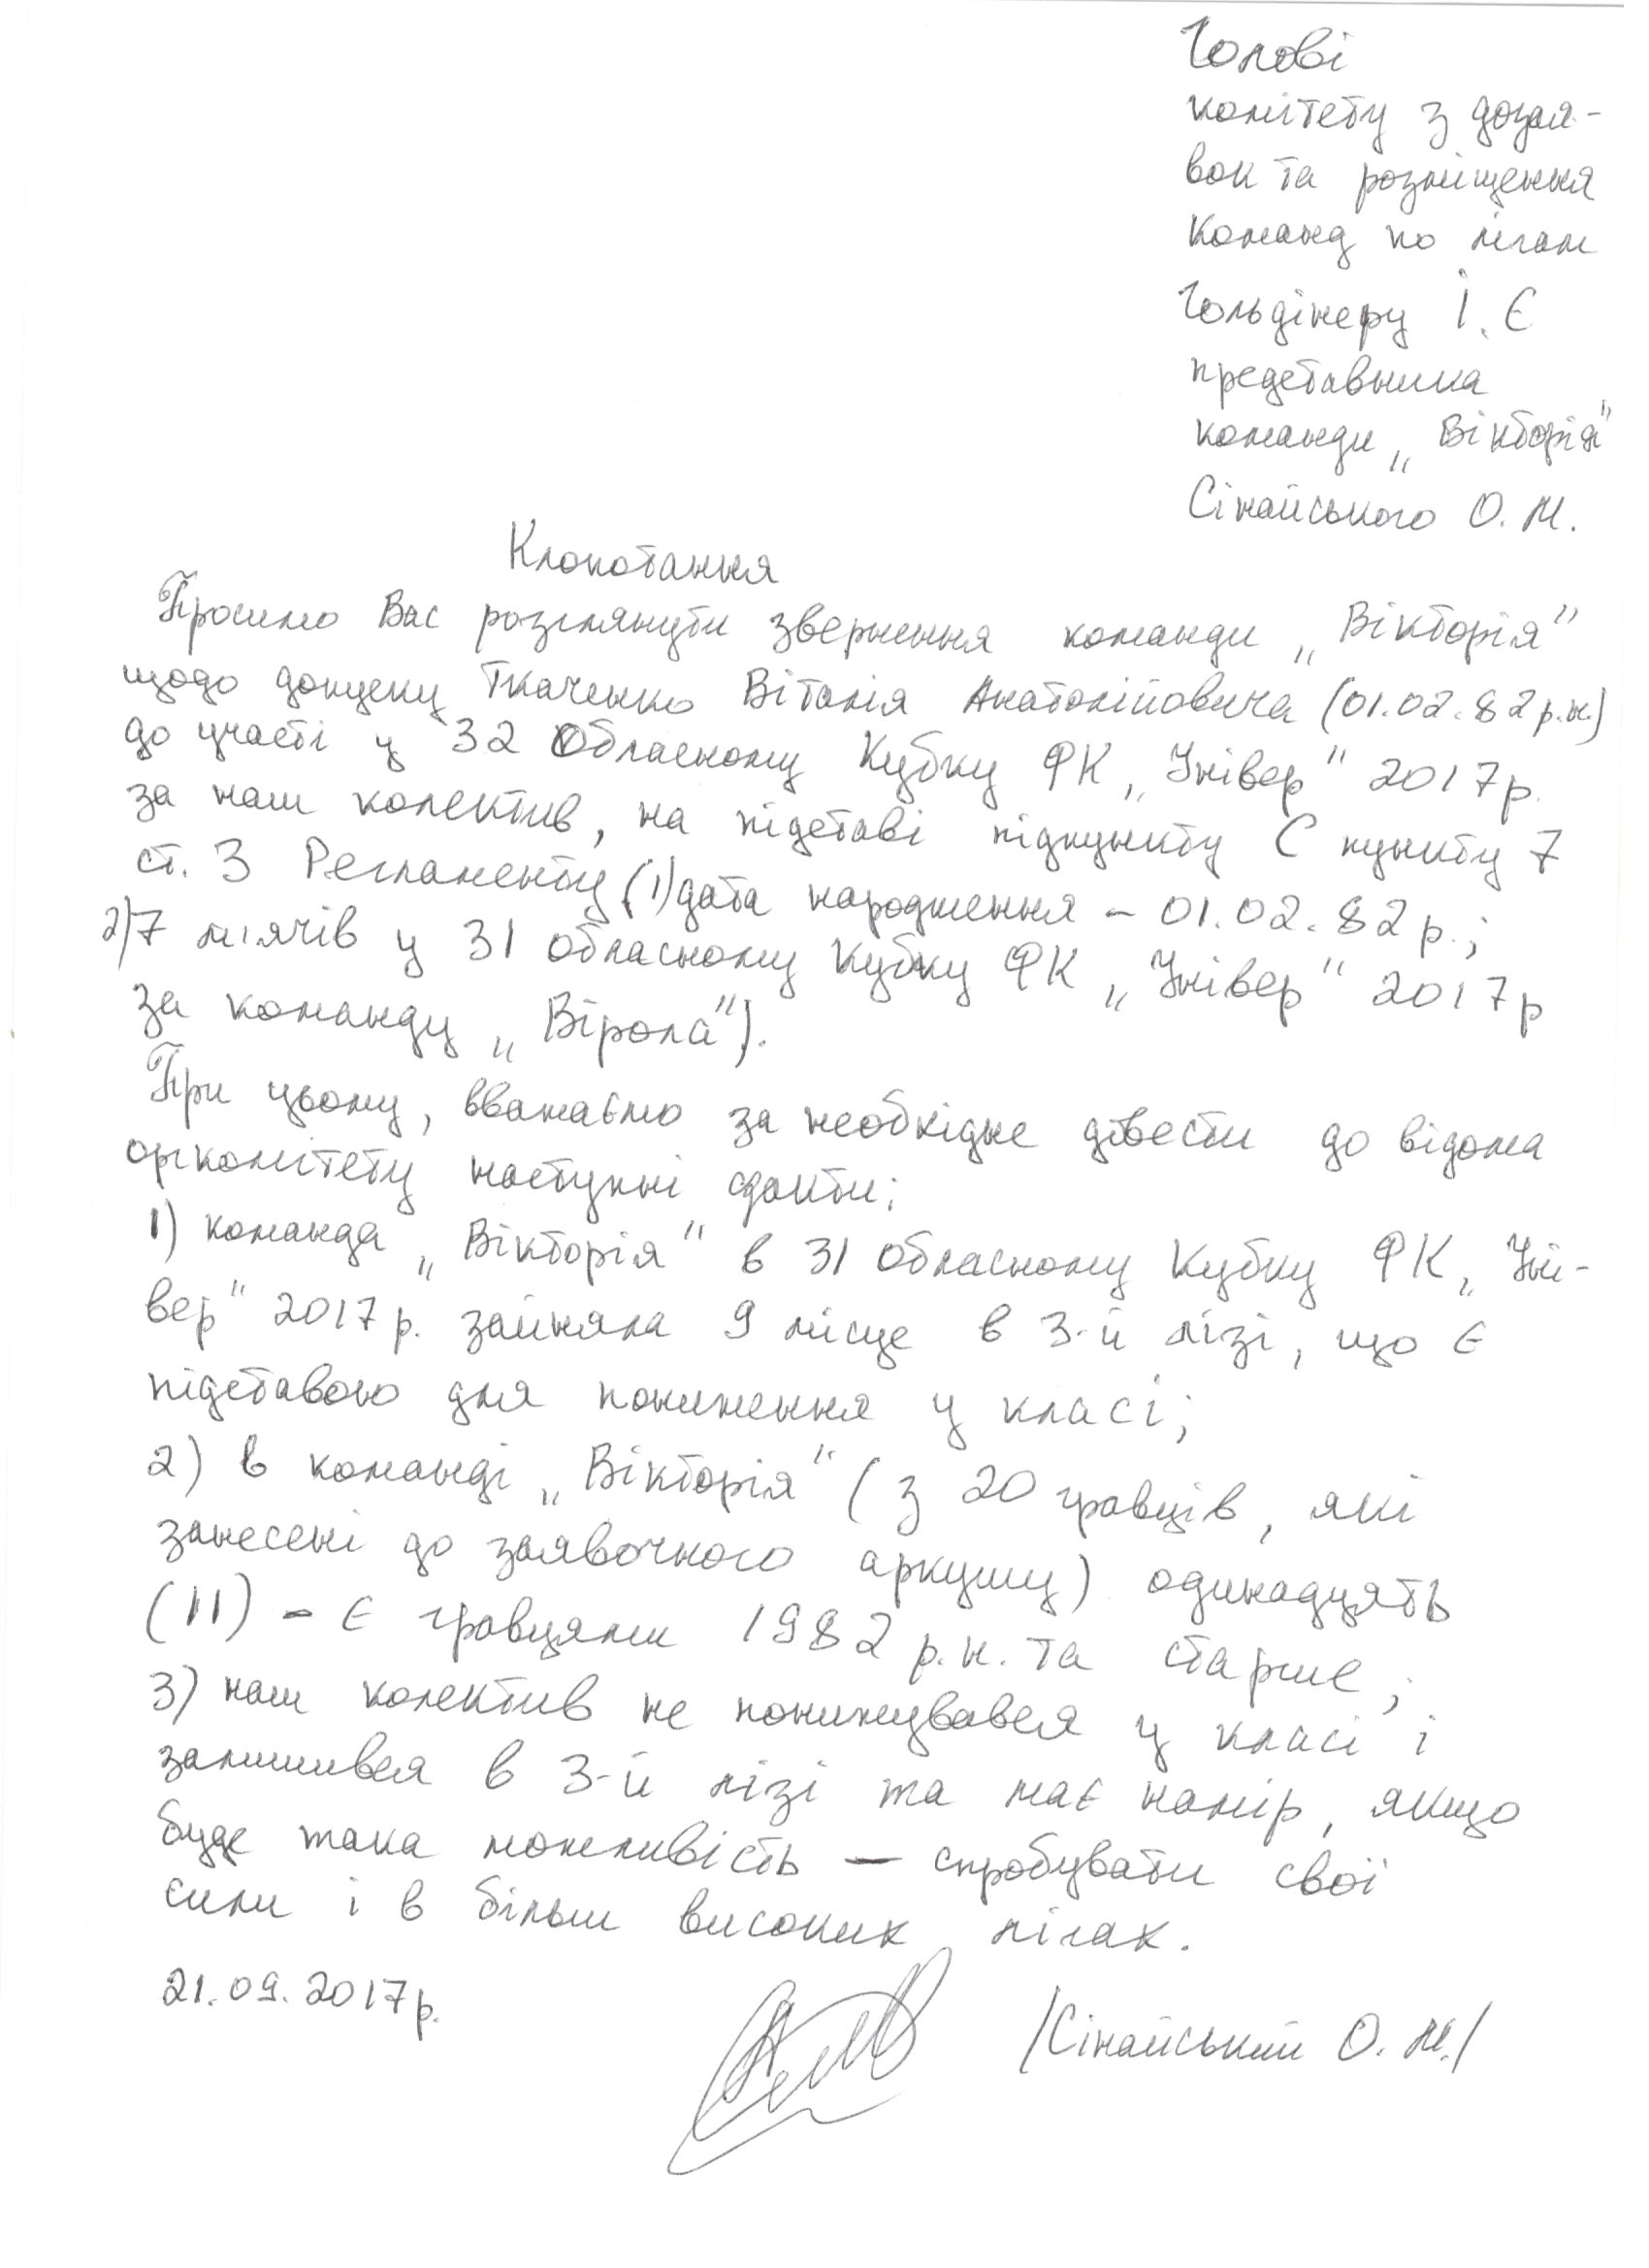 Голові
комітету з дозая-
вок та розміщення
команд по лігам
Гольдінеру І. Є
представника
команди „Вікторія"
Сінайського О. М.
Клопотання
Просимо Вас розглянути звернення команди „Вікторія"
щодо допуску Ткаченко Віталія Анатолійовича (01.02.82р.н.)
до участі у 32 Обласному Кубку ФК „Універ" 2017р.
за наш колектив, на підставі підпункту С пункту 7
ст. 3 Регламенту (1) дата народження – 01.02.82р.;
2) 7 м'ячів у 31 обласному Кубку ФК „Універ" 2017р
за команду „Вірола").
При цьому, вважаємо за необхідне довести до відома
оргкомітету наступні факти:
1) команда „Вікторія" в 31 Обласному Кубку ФК „Уні-
вер" 2017р. зайняла 9 місце в 3-й лізі, що є
підставою для пониження у класі;
2) в команді „Вікторія" (з 20 гравців, які
занесені до заявочного аркушу) одинадцять
(11) – є гравцями 1982 р.н. та старше;
3) наш колектив не понижувався у класі і
залишився в 3-й лізі та має намір, якщо
буде така можливість – спробувати свої
сили і в більш високих лігах.
21.09.2017р.
/Сінайський О. М./